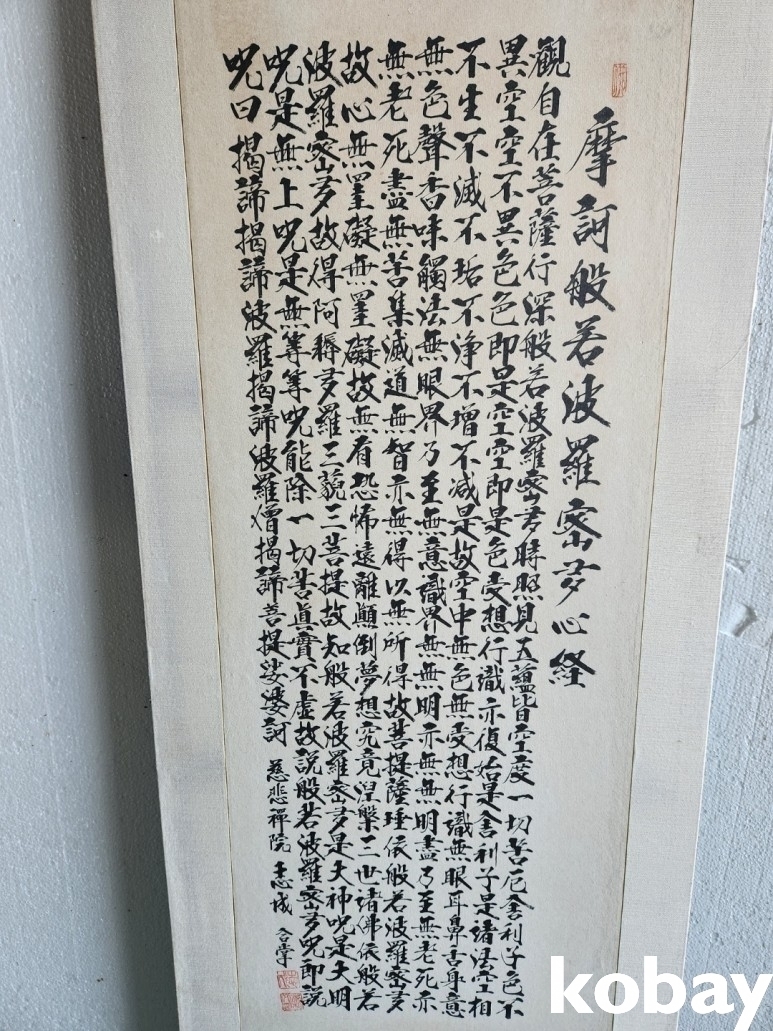 摩訶般若波羅蜜多心経
觀自在菩薩行深般若波羅蜜多時照見五蘊皆空度一切苦厄舍利子色不
異空空不異色色即是空空即是色受想行識亦復如是舍利子是諸法空相
不生不滅不垢不淨不增不减是故空中無色無受想行識無眼耳鼻舌身意
無色聲香味觸法無眼界乃至無意識界無無明亦無無明盡乃至無老死亦
無老死盡無苦集滅道無智亦無得以無所得故菩提薩埵依般若波羅蜜多
故心無罣礙無罣礙故無有恐怖遠離顛倒夢想究竟涅槃三世諸佛依般若
波羅蜜多故得阿耨多羅三藐三菩提故知般若波羅蜜多是大神呪是大明
呪是無上呪是無等等呪能除一切苦真實不虛故説般若波羅蜜多呪即説
呪曰揭諦揭諦波羅揭諦波羅僧揭諦菩提娑婆訶
慈悲禪院 志成 合掌
kobay